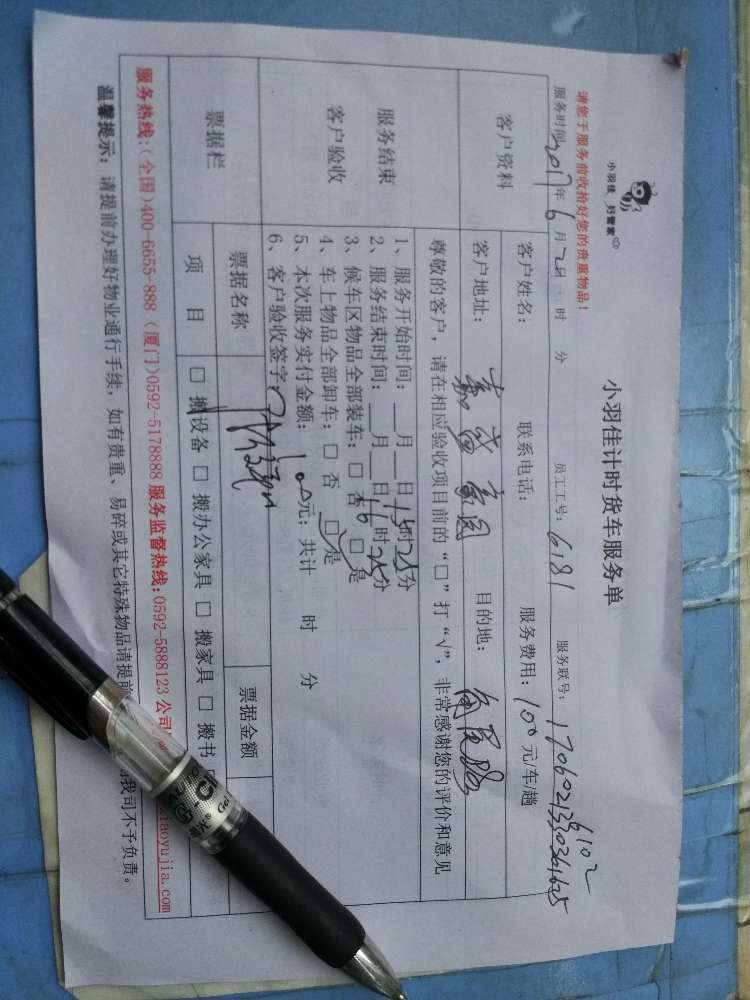 请您于服务前收拾好您的贵重物品！
小羽佳 好管家
小羽佳计时货车服务单
服务时间：2017年6月2日 时 分 员工工号：6181 服务联号：
客户资料 客户姓名： 联系电话： 服务费用：100元/车/趟
客户地址： 嘉盛豪园 目的地：
尊敬的客户，请在相应验收项目前的“□”打“√”，非常感谢您的评价和意见
服务结束
客户验收
1、服务开始时间：__月__日15时25分
2、服务结束时间：__月__日16时25分
3、候车区物品全部装车：□ 否 □ 是
4、车上物品全部卸车：□ 否 □ 是
5、本次服务实付金额：100元；共计 时 分
6、客户验收签字：
票据栏 票据名称 票据金额
项 目 □ 搬设备 □ 搬办公家具 □ 搬家具 □ 搬书
服务热线：（全国）400-6655-888（厦门）0592-5178888 服务监督热线：0592-5888123 公司 xiaoyujia.com
温馨提示：请提前办理好物业通行手续，如有贵重、易碎或其它特殊物品请提前 我司不予负责。